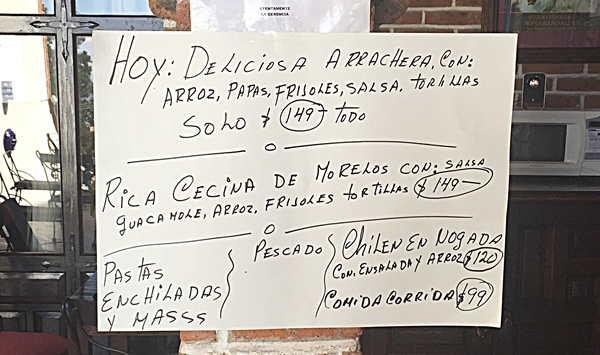 ATENTAMENTE
LA GERENCIA
HOY: DELICIOSA ARRACHERA, CON:
ARROZ, PAPAS, FRIJOLES, SALSA, TORTILLAS
SOLO $ 149- TODO
O
RICA CECINA DE MORELOS CON: SALSA
GUACAMOLE, ARROZ, FRIJOLES TORTILLAS $149-
O
PASTAS
ENCHILADAS
Y MASSS
PESCADO
CHILE EN NOGADA
CON. ENSALADA Y ARROZ $120
COMIDA CORRIDA $99